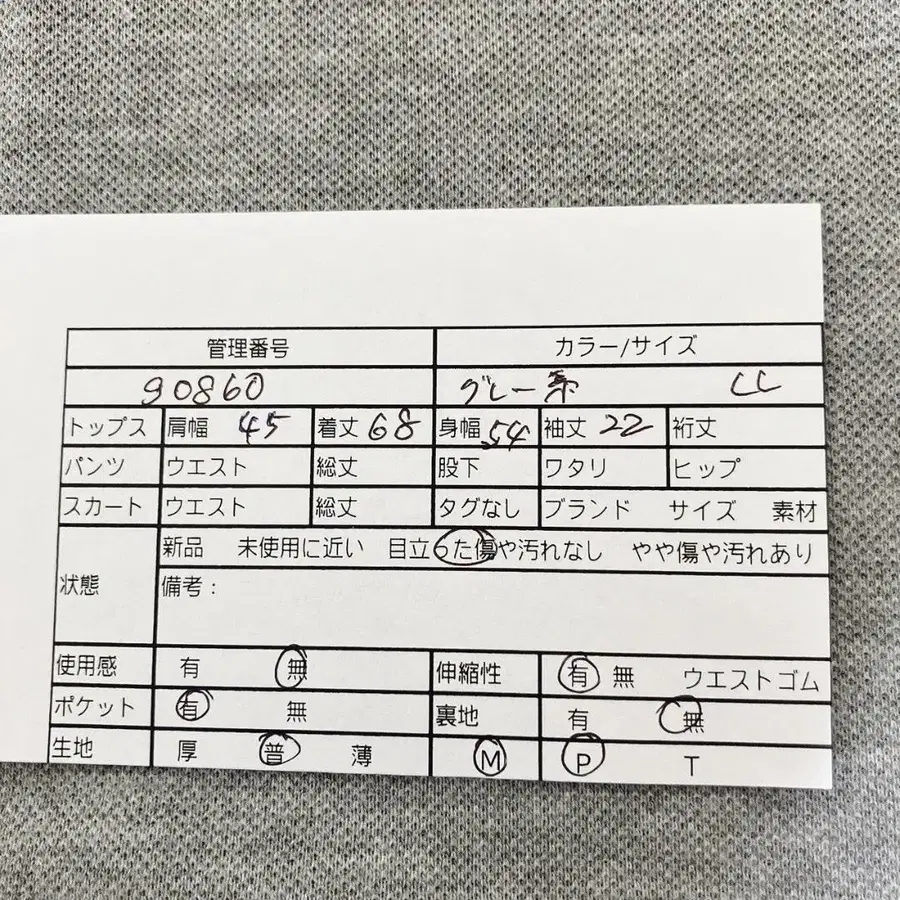 管理番号 カラー/サイズ
90860 グレー系 LL
トップス 肩幅 45 着丈 68 身幅 54 袖丈 22 裄丈
パンツ ウエスト 総丈 股下 ワタリ ヒップ
スカート ウエスト 総丈 タグなし ブランド サイズ 素材
新品 未使用に近い 目立った傷や汚れなし やや傷や汚れあり
状態 備考：
使用感 有 無 伸縮性 有 無 ウエストゴム
ポケット 有 無 裏地 有 無
生地 厚 普 薄 M P T